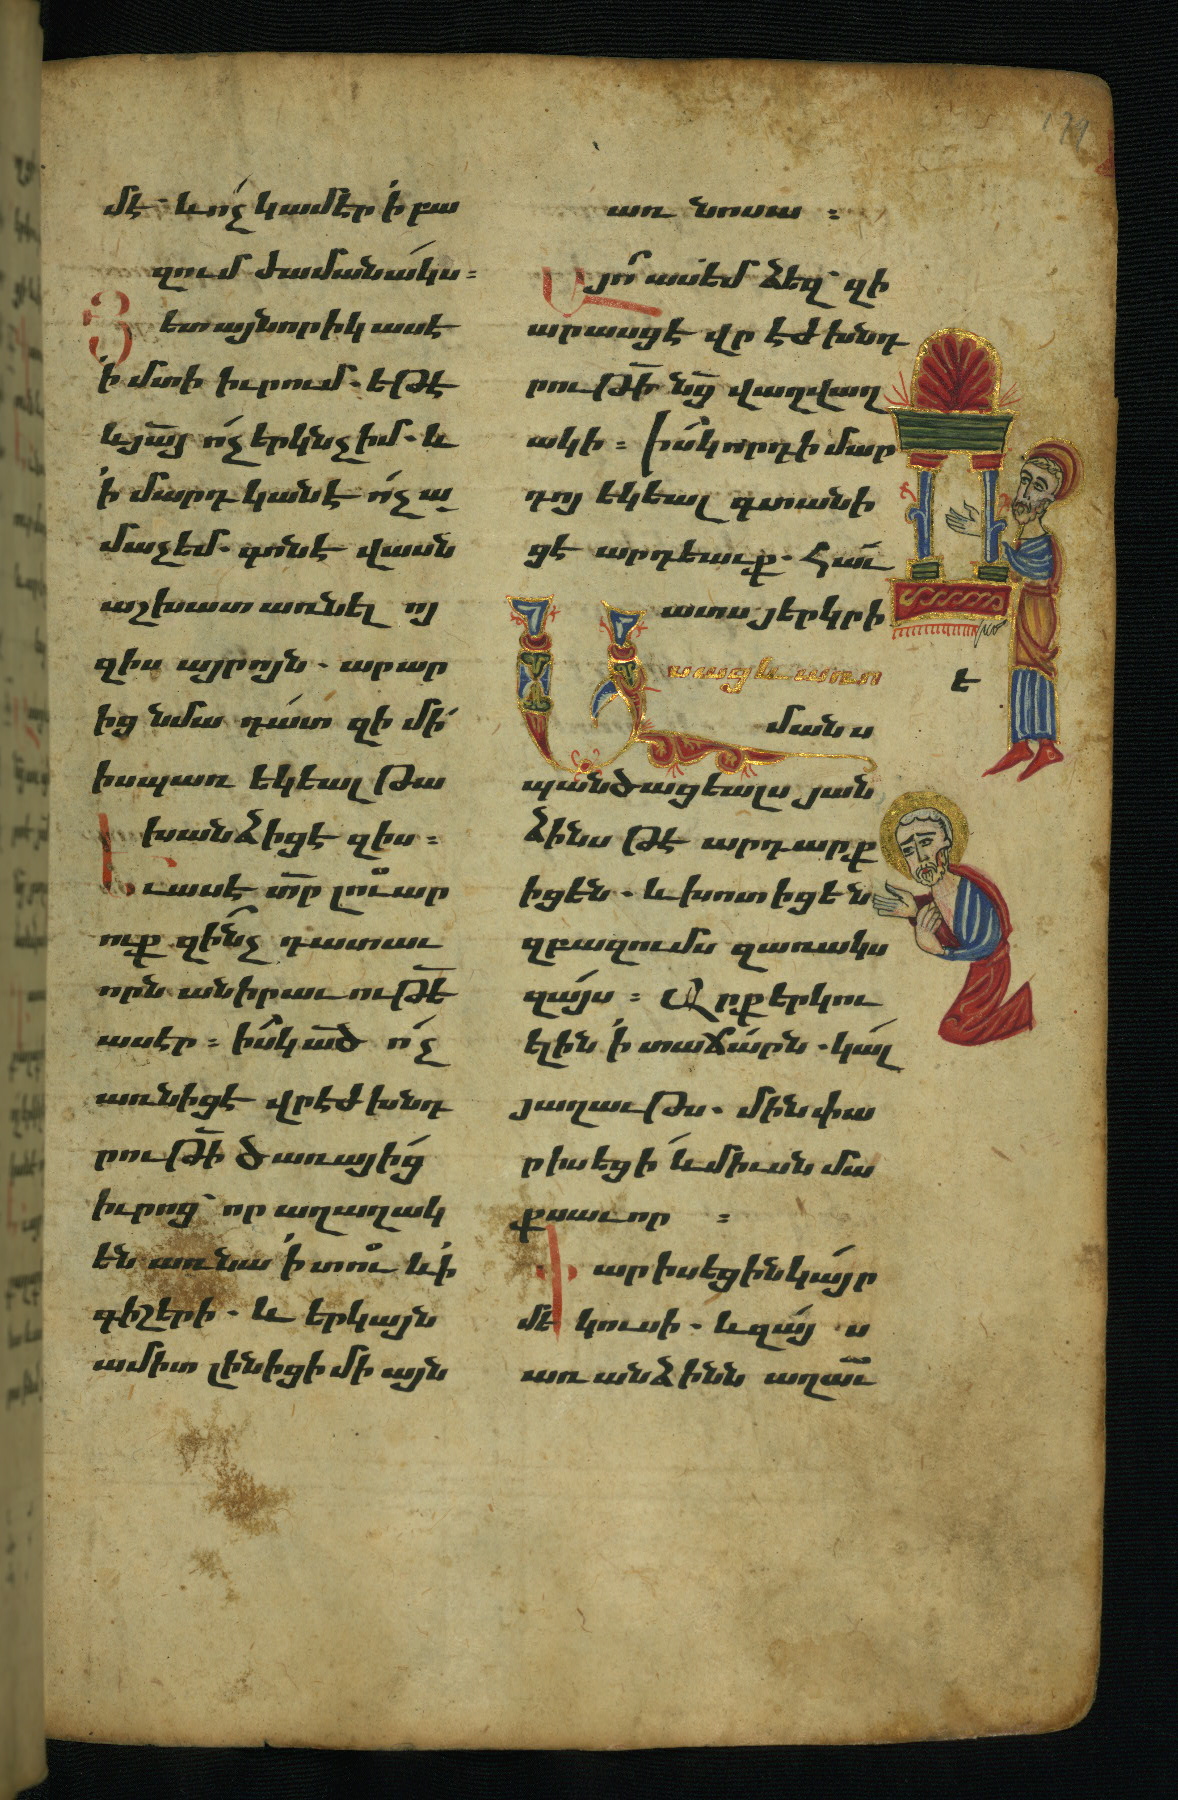 մէ՝ և ո՛չ կամէր ի՛ բա
զում ժամանա՛կս ։
Յետ այնորիկ ասէ
ի՛ մտի իւրում . եթէ
և յա̅յ ո՛չ երկնչ իմ . և
ի՛ մարդկանէ ո՛չ ա
մաչեմ . գո՛նէ վասն
աշխատ առնել ոյ
զիս այրոյն . արար
ից նմա դա՛տ զի մի՛
իսպառ եկեալ թա
խանձիցէ զիս ։
Եւ ասէ տ̅ր լուար
ուք զինչ դատաւ
որն անիրաւութե̅
ասէր ։ իսկ ա̅ծ ո՛չ
առնիցէ վրէժխնդ
րութի̅ ծառայից
իւրոց՝ որ աղաղակ
են առ նա ի՛ տուէ և ի՛
գիշերի . և երկայն
ամիտ լինիցի մի այն
առ նոսա ։
Այո՛ ասեմ ձեզ՝ զի
արասցէ վրէժխնդ
րութի̅ նց̅ վաղվաղ
ակի ։ Իսկ որդի մար
դոյ եկեալ գտանի
ցէ արդեաւք . հաւ
ատս յերկրի
Ասաց և առ ո
մանս
պանծացեալս յան
ձինս թէ արդարք
իցեն . և խոտիցեն
զբազումս զառակս
զայս ։ Արք երկու
ելին ի՛ տաճարն . կալ
յաղաւթս . մին փա
րիսեցի և միւսն մա
քսաւոր ։
Փարիսեցին կայր
մեկուսի . և զայս
առ անձինն աղաւ
է
179